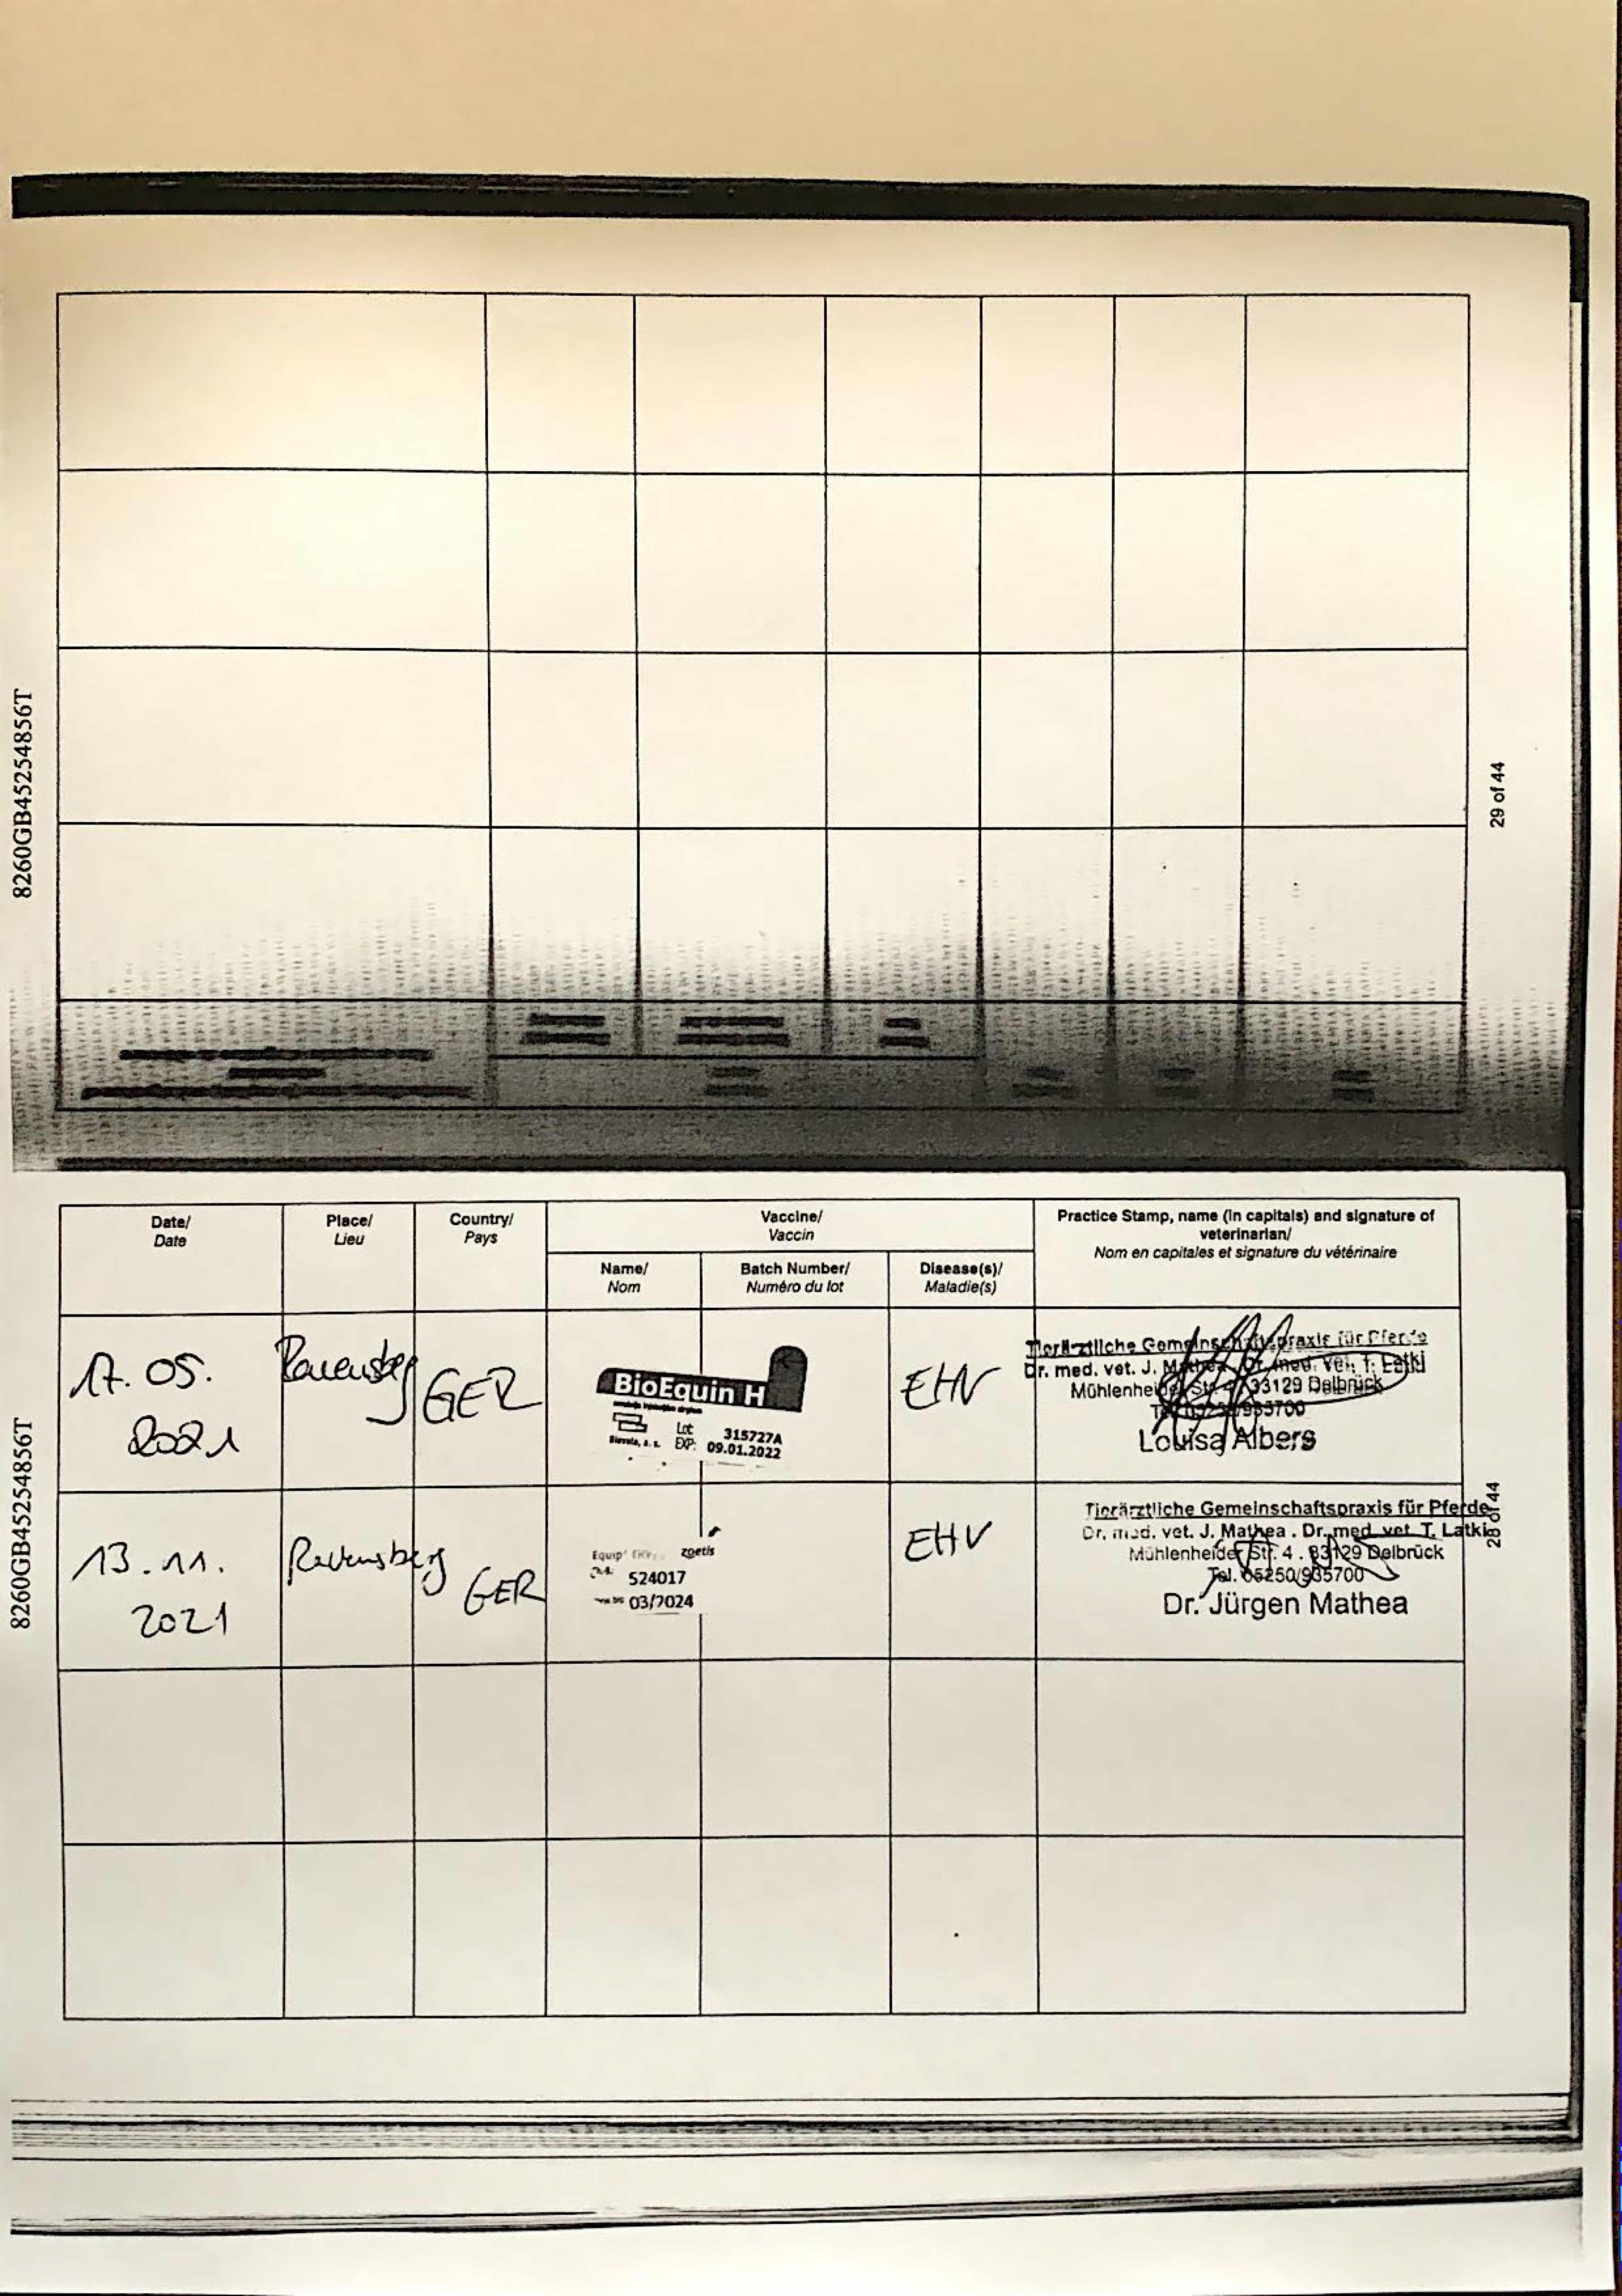 8260GB45254856T
29 of 44
Date/
Date
Place/
Lieu
Country/
Pays
Vaccine/
Vaccin
Name/
Nom
Batch Number/
Numéro du lot
Disease(s)/
Maladie(s)
Practice Stamp, name (in capitals) and signature of
veterinarian/
Nom en capitales et signature du vétérinaire
17.05.
2021
Ravensberg
GER
BioEquin H
Lot 315727A
EXP: 09.01.2022
EHV
Tierärztliche Gemeinschaftspraxis für Pferde
Dr. med. vet. J. Mathea . Dr. med. vet. T. Latki
Mühlenheider Str. 4 . 33129 Delbrück
Louisa Albers
13.11.
2021
Ravensberg
GER
Equip EHV zoetis
524017
03/2024
EHV
Tierärztliche Gemeinschaftspraxis für Pferde
Dr. med. vet. J. Mathea . Dr. med. vet. T. Latki
Mühlenheider Str. 4 . 33129 Delbrück
Tel. 05250/935700
Dr. Jürgen Mathea
8260GB45254856T
28 of 44